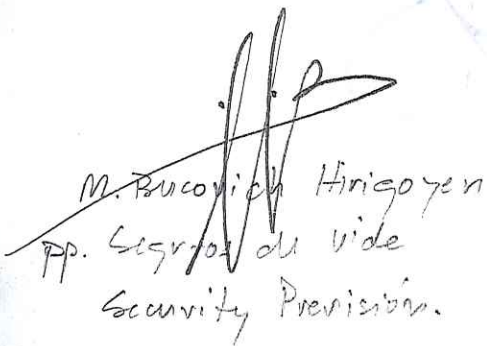 M. Bucovich Hirigoyen
pp. Seguros de Vida
Security Previsión.